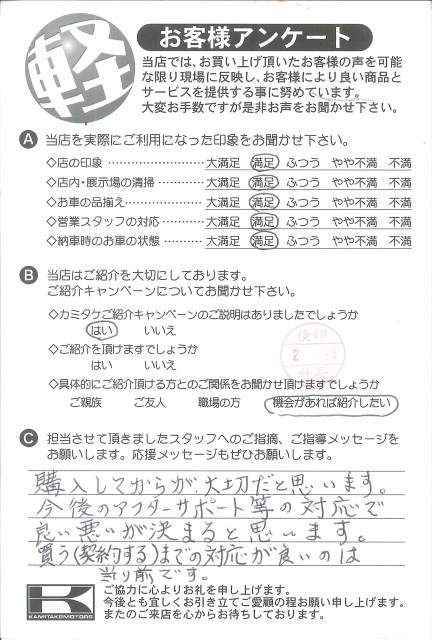 軽
お客様アンケート
当店では、お買い上げ頂いたお客様の声を可能
な限り現場に反映し、お客様により良い商品と
サービスを提供する事に努めています。
大変お手数ですが是非お声をお聞かせ下さい。
A 当店を実際にご利用になった印象をお聞かせ下さい。
◇店の印象 ………………… 大満足 満足 ふつう やや不満 不満
◇店内・展示場の清掃 ………… 大満足 満足 ふつう やや不満 不満
◇お車の品揃え ……………… 大満足 満足 ふつう やや不満 不満
◇営業スタッフの対応 ………… 大満足 満足 ふつう やや不満 不満
◇納車時のお車の状態 ………… 大満足 満足 ふつう やや不満 不満
B 当店はご紹介を大切にしております。
ご紹介キャンペーンについてお聞かせ下さい。
◇カミタケご紹介キャンペーンのご説明はありましたでしょうか
はい いいえ
◇ご紹介を頂けますでしょうか
はい いいえ
検印
社長
◇具体的にご紹介頂ける方とのご関係をお聞かせ頂けますでしょうか
ご親族 ご友人 職場の方 機会があれば紹介したい
C 担当させて頂きましたスタッフへのご指摘、ご指導メッセージを
お願いします。応援メッセージもぜひお願いします。
購入してからが、大切だと思います。
今後のアフターサポート等の対応で
良い悪いが決まると思います。
買う(契約する)までの対応が良いのは
当り前です。
KAMITAKEMOTORS
ご協力に心よりお礼を申し上げます。
今後とも宜しくお引き立てご愛顧の程お願い申し上げます。
またのご来店を心からお待ちしております。